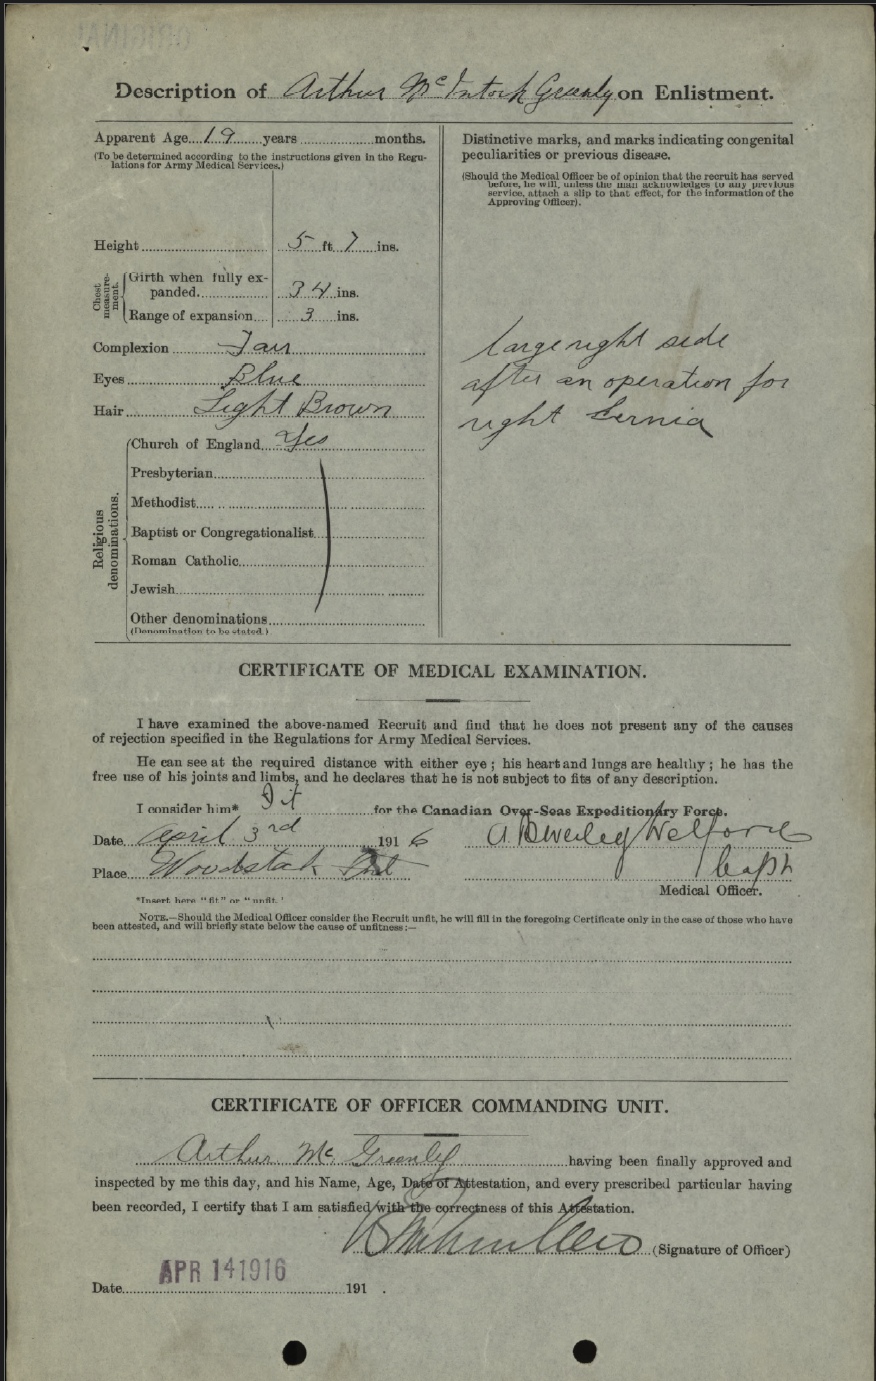 ORIGINAL
Description of Arthur Mc Intosh Greenly on Enlistment.
Apparent Age....19......years.................months.
(To be determined according to the instructions given in the Regu-
lations for Army Medical Services.)
Height............................5....ft...7....ins.
Chest
measure-
ment.
Girth when fully ex-
panded...............34....ins.
Range of expansion.......3.....ins.
Complexion......Fair
Eyes......Blue
Hair......Light Brown
Religious
denominations.
Church of England....Yes
Presbyterian
Methodist
Baptist or Congregationalist
Roman Catholic
Jewish
Other denominations
(Denomination to be stated.)
Distinctive marks, and marks indicating congenital
peculiarities or previous disease.
(Should the Medical Officer be of opinion that the recruit has served
before, he will, unless the man acknowledges to any previous
service, attach a slip to that effect, for the information of the
Approving Officer).
large right side
after an operation for
right hernia
CERTIFICATE OF MEDICAL EXAMINATION.
I have examined the above-named Recruit and find that he does not present any of the causes
of rejection specified in the Regulations for Army Medical Services.
He can see at the required distance with either eye; his heart and lungs are healthy; he has the
free use of his joints and limbs, and he declares that he is not subject to fits of any description.
I consider him* Fit for the Canadian Over-Seas Expeditionary Force.
Date April 3rd 1916 A. Beverley Welford
Place Woodstock Ont Capt
Medical Officer.
*Insert here "fit" or "unfit."
NOTE.—Should the Medical Officer consider the Recruit unfit, he will fill in the foregoing Certificate only in the case of those who have
been attested, and will briefly state below the cause of unfitness:—
CERTIFICATE OF OFFICER COMMANDING UNIT.
Arthur Mc Greenly having been finally approved and
inspected by me this day, and his Name, Age, Date of Attestation, and every prescribed particular having
been recorded, I certify that I am satisfied with the correctness of this Attestation.
(Signature of Officer)
APR 14 1916
Date 191 .